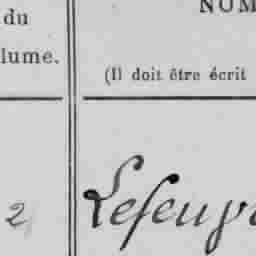 du
NOM
lume.
(Il doit être écrit
2